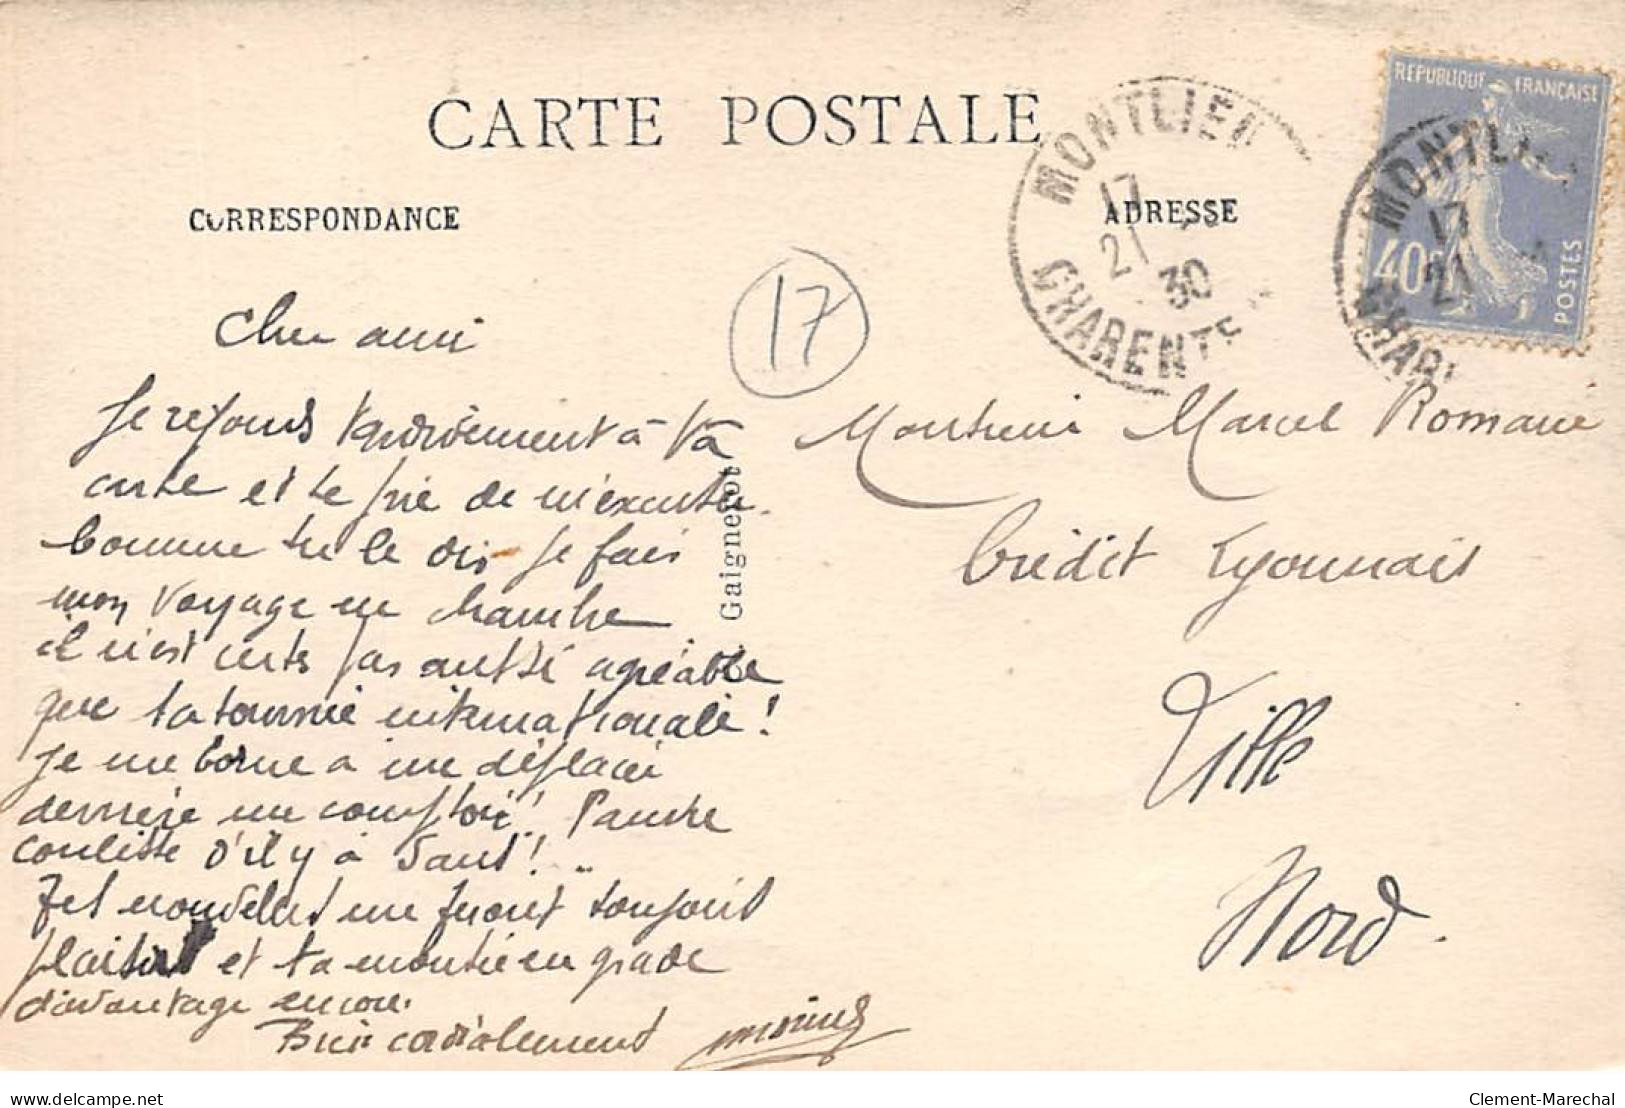 CARTE POSTALE
CORRESPONDANCE
ADRESSE
MONTLIEU
17
21
30
CHARENTE
REPUBLIQUE FRANÇAISE
40c
POSTES
MONTLI
17
21
CHAR
17
Cher ami
Je réponds tardivement à ta
carte et te prie de m'excuser.
Comme tu le dis je fais
mon voyage en chambre
il n'est certes pas aussi agréable
que ta tournée internationale!
Je me borne à me déplacer
derrière un comptoir! Pauvre
coulisse d'il y a 5 ans!..
Tes nouvelles me feront toujours
plaisir et ta montée en grade
davantage encore.
Bien cordialement
Gaignerot
Monsieur Marcel Romane
Crédit Lyonnais
Lille
Nord.
delcampe.net
Clement-Marechal